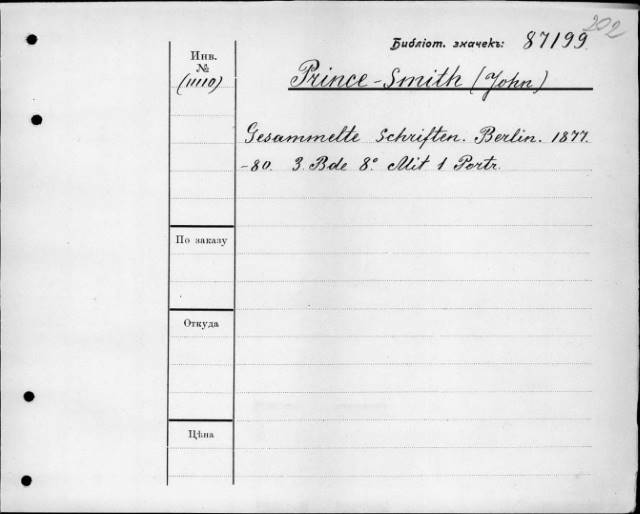 202
Библіот. значекъ: 87199
Инв.
№
(11110)
Prince-Smith (John)
Gesammelte Schriften. Berlin. 1877.
-80. 3 Bde 8° Mit 1 Portr.
По заказу
Откуда
Цѣна